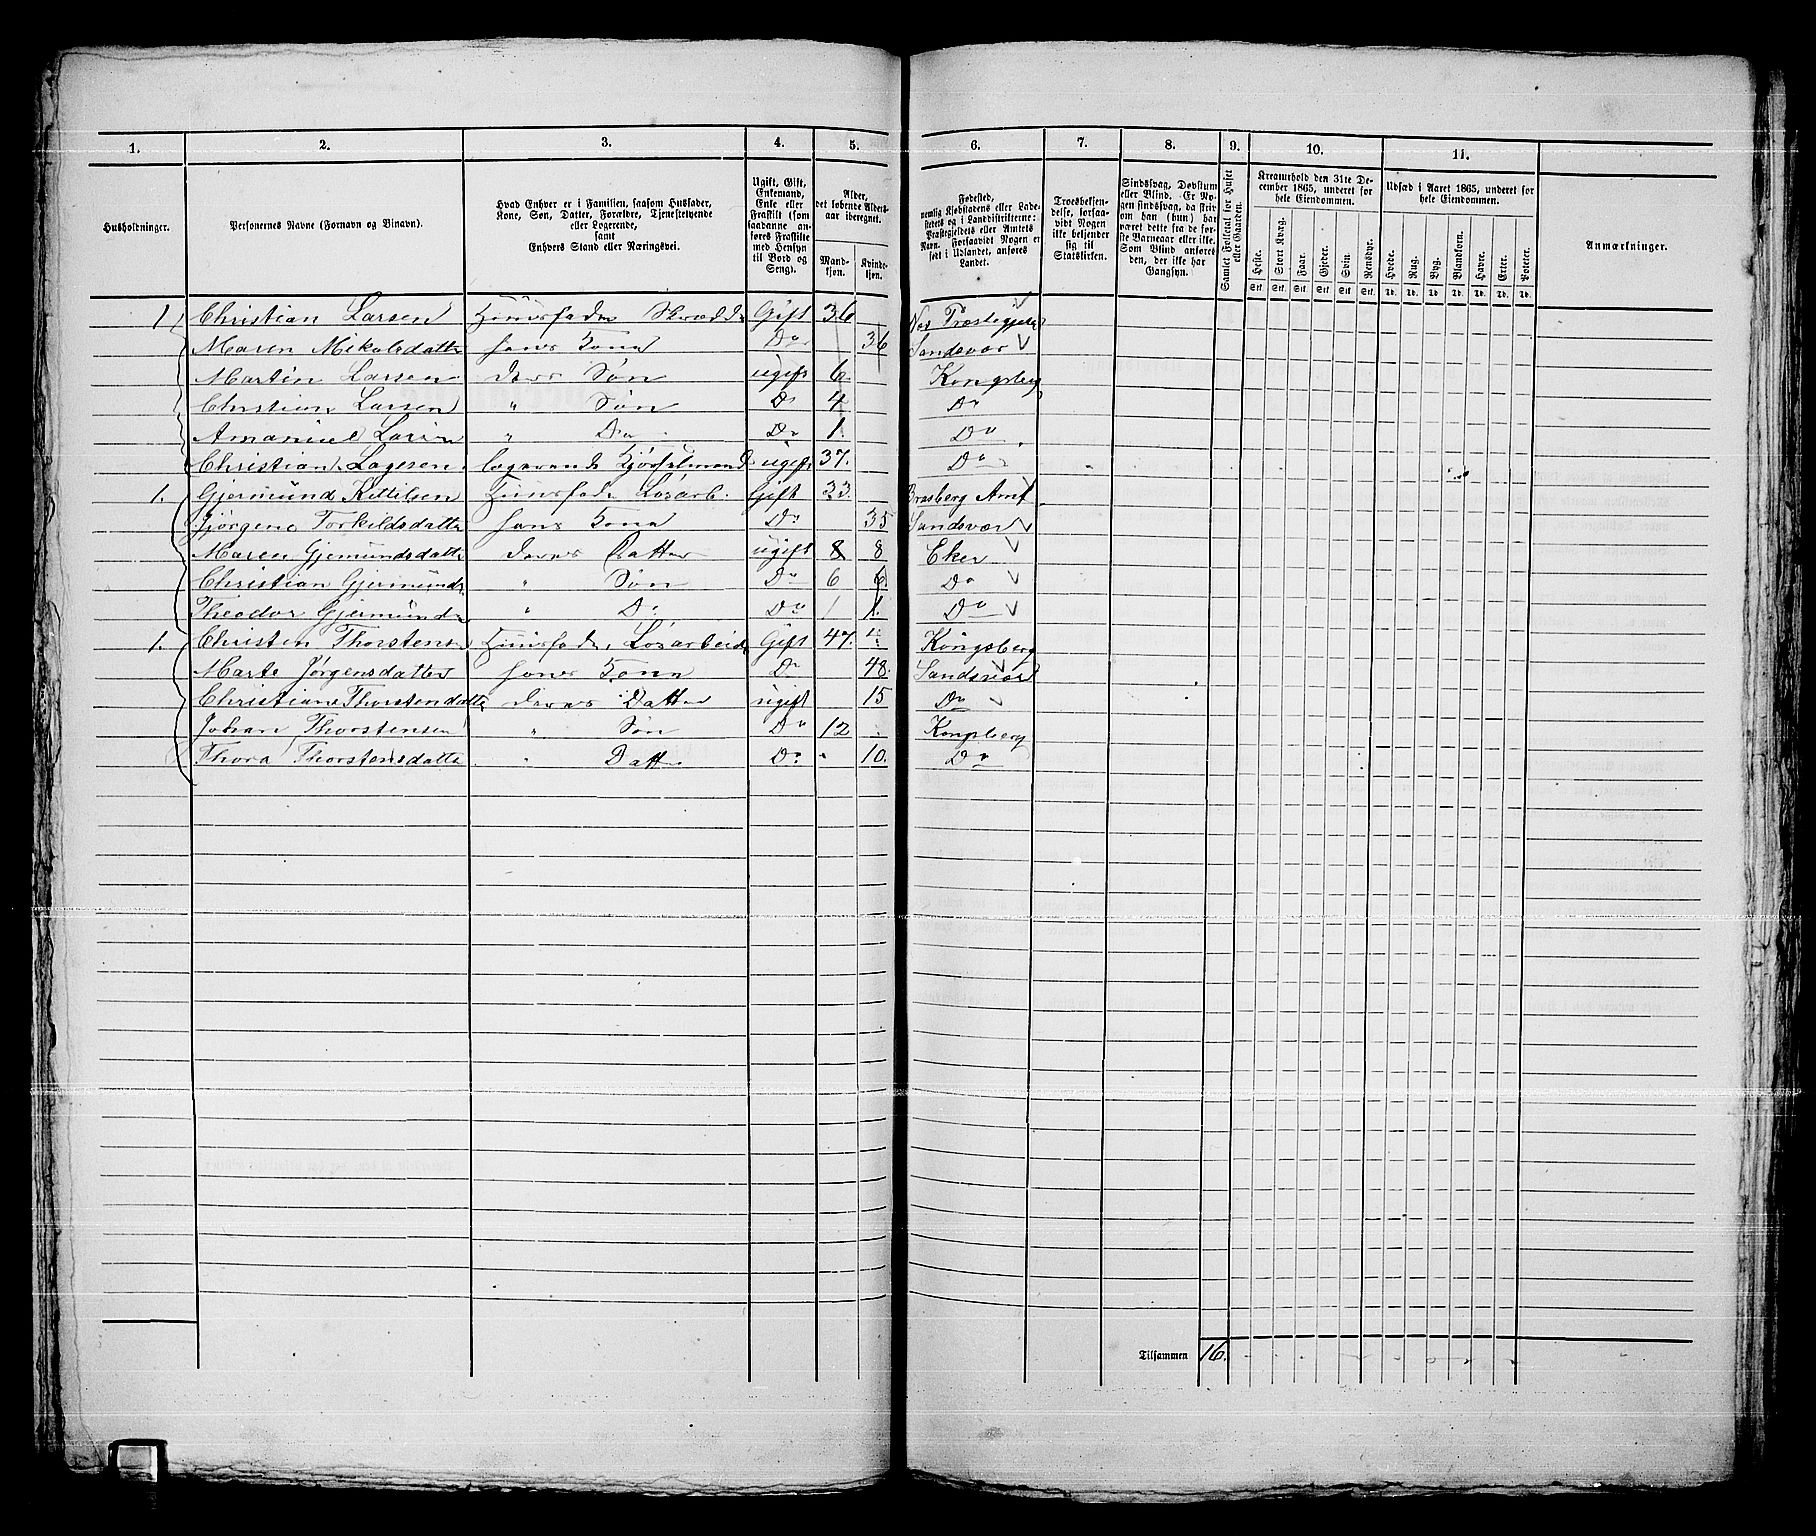 1. 2. 3. 4. 5. 6. 7. 8. 9. 10. 11.
Husholdninger.
Personernes Navne (Fornavn og Binavn).
Hvad Enhver er i Familien, saasom Husfader,
Kone, Søn, Datter, Forældre, Tjenestetyende
eller Logerende,
samt
Enhvers Stand eller Næringsvei.
Ugift, Gift,
Enkemand,
Enke eller
Fraskilt (som
saadanne an-
føres Fraskilte
med Hensyn
til Bord og
Seng).
Alder,
det løbende Alders-
aar iberegnet.
Mand-
kjøn.
Kvinde-
kjøn.
Fødested,
nemlig Kjøbstadens eller Lade-
stedets og i Landdistrikterne:
Præstegjeldets eller Amtets
Navn. Forsaavidt Nogen er
født i Udlandet, anføres
Landet.
Troesbekjen-
delse, forsaa-
vidt Nogen
ikke bekjender
sig til
Statskirken.
Sindssvag, Døvstum
eller Blind. Er No-
gen sindssvag, da skriv
om han (hun) har
været dette fra de før-
ste Barneaar eller ikke.
Som Blind anføres
den, der ikke har
Gangsyn.
Samlet Folketal for Huset
eller Gaarden.
Kreaturhold den 31te De-
cember 1865, underet for
hele Eiendommen.
Heste. Stort Kvæg. Faar. Gjeder. Svin. Rensdyr.
Stk. Stk. Stk. Stk. Stk. Stk.
Udsæd i Aaret 1865, underet for
hele Eiendommen.
Hvede. Rug. Byg. Blandkorn. Havre. Erter. Poteter.
Td. Td. Td. Td. Td. Td. Td.
Anmærkninger.
1 Christian Larsen Huusfader Skrædd Gift 36 Næs Præstegjeld
Maren Mikolsdatter hans Kone Do 36 Sandsvær
Martin Larsen deres Søn ugift 6 Kongsberg
Christian Larsen " Søn Do 4 Do
Amanuel Larsen " Do Do 1. Do
Christian Lagesen logerende ugift 37. Do
1. Gjermund Kittilsen Huusfad Løsarb. Gift 33. Brasberg Amt
Jørgene Torkildsdatter hans Kone Do 35 Sandsvær
Maren Gjemundsdatte deres Datter ugift 8 8 Eker
Christian Gjermunds " Søn Do 6 6. Do
Theodor Gjermunds " Do Do 1 1. Do
1. Christen Thorstens Huusfader, Løsarbeid Gift 47. " Kongsberg
Marte Jørgensdatter hans Kone Do 48. Sandsvær
Christiane Thorstendatte deres Datter ugift 15 Do
Johan Thorstensen " Søn Do 12 Kongsberg
Thora Thorstensdatte " Datt. Do 10. Do
Tilsammen 16.